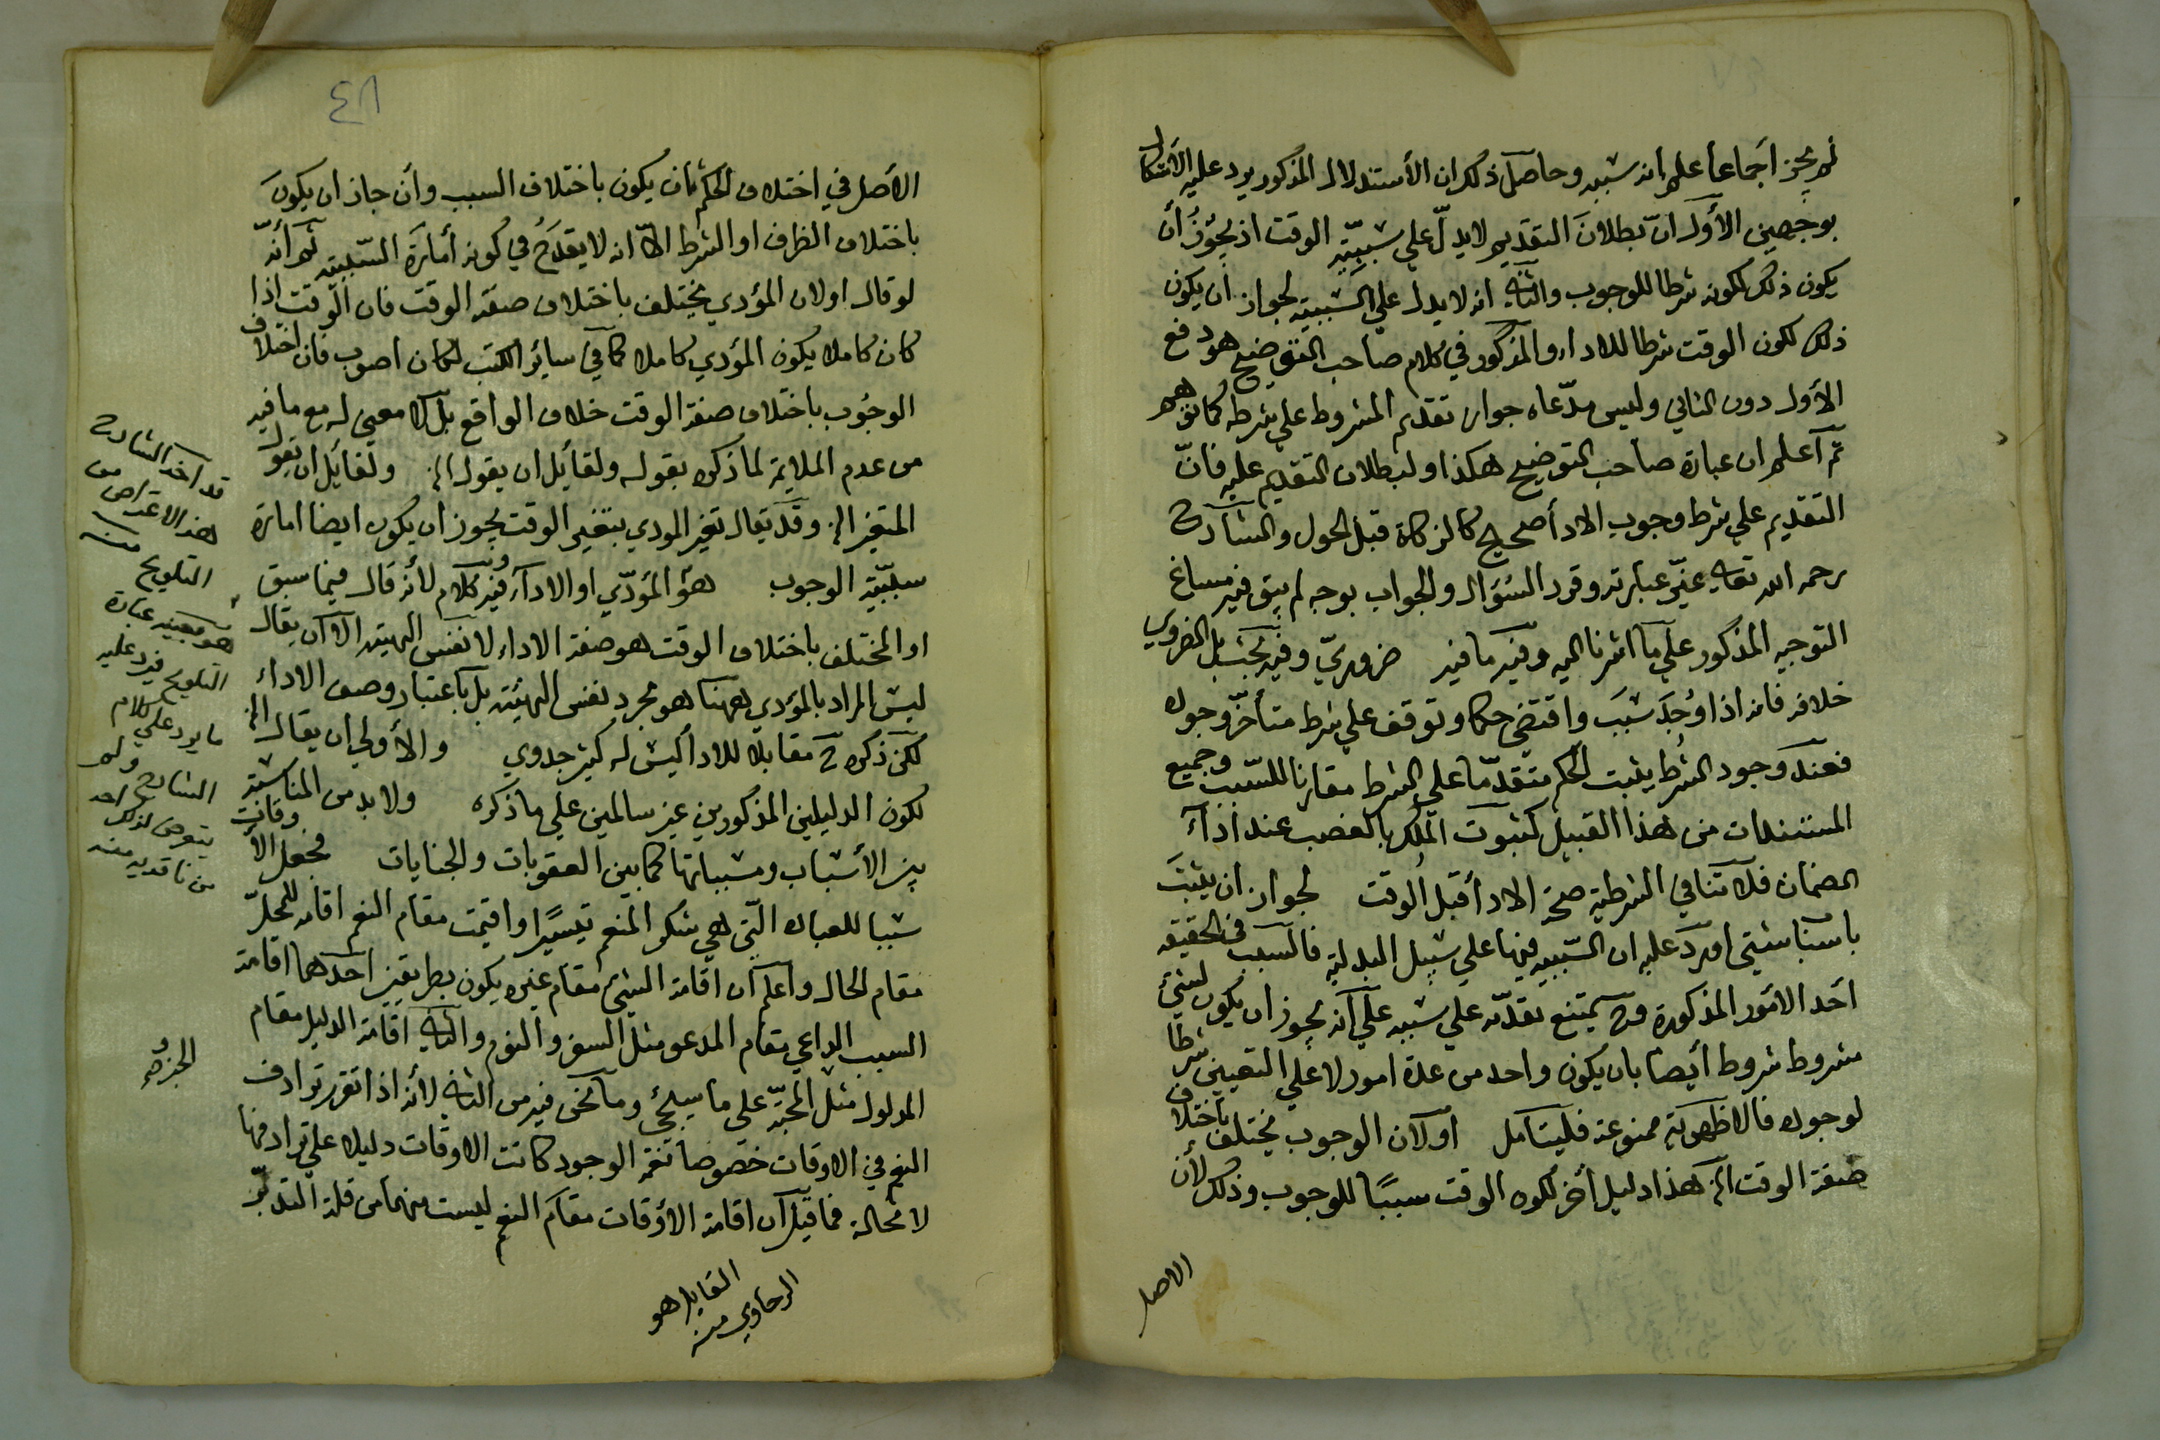 لم يجز اجماعا علم انه سببه وحاصل ذلك ان الأستدلال المذكور يرد عليه الأشكال
بوجهين الأول ان بطلان التقديم لا يدل علي سببيّة الوقت اذ يجوز أن
يكون ذلك لكونه شرطا للوجوب والثاني انه لا يدل علي السببية لجواز ان يكون
ذلك لكون الوقت شرطا للاداء والمذكور في كلام صاحب التوضيح هو دفع
الأول دون الثاني وليس مدّعاه جواز تقدم المشروط علي شرطه كما توهم
ثم اعلم ان عبارة صاحب التوضيح هكذا ولبطلان التقديم عليه فانّ
التقديم علي شرط وجوب الادأ صحيح كالزكاة قبل الحول والشارح
رحمه الله تعالى غيّر عبارته وقرر السؤال والجواب بوجه لم يبق فيه مساغ
التوجيه المذكور علي ما اشرنا اليه وفيه ما فيه ضروريّ وفيه بحث بل الضروري
خلافه فانه اذا وُجدَ سببَ واقتضي حكما وتوقف علي شرط متأخر وجوده
فعند وجود الشرط يثبت الحكم متقدّما علي الشرط مقارنا للسّبب وجميع
المستندات من هذا القبيل كثبوت الملك بالغصب عند أدآء
الضمان فلا تنافي الشرطية صحة الادأ قبل الوقت لجواز ان يثبت
باسباب شتي اورد عليه ان السّببية فيها علي سبيل البدلية فالسبب في الحقيقه
احد الامور المذكورة وح يمتنع تقدّمه علي سببه علي آنه يجوز ان يكون لشئ
مشروط شروط أيضا بان يكون واحد من عدة امور لا علي التعيين شرطا
لوجوده فالاظهرية ممنوعة فليتامل اولان الوجوب يختلف باختلاف
صفة الوقت الخ هذا دليل أخر لكون الوقت سببًا للوجوب وذلك لأن
الاصل
٤٨
الأصل في اختلاف الحكم بان يكون باختلاف السبب وأن جاز ان يكون
باختلاف الظرف او الشرط الّا انه لا يقدح في كونه أمارة السّببية ثم أنه
لو قال اولان المؤدي يختلف باختلاف صفة الوقت فان الوقت اذا
كان كاملا يكون المؤدي كاملا كما في سائر الكتب لكان اصوب فان اختلاف
الوجوب باختلاف صفة الوقت خلاف الواقع بل لا معني له مع ما فيه
من عدم الملايمة لما ذكره بقوله ولقائل ان يقول الخ ولقائل ان يقول
المتغير الخ وقد يقال تغير المودي بتغير الوقت يجوز ان يكون ايضا امارة
سببّية الوجوب هو المؤدّي او الادآء وفيه كلام لأنه قال فيما سبق
او المختلف باختلاف الوقت هو صفة الاداء لا نفس الهيئة الا ان يقال
ليس المراد بالمؤدي ههنا هو مجرد نفس الهيئة بل باعتبار وصف الاداء
لكن ذكره في مقابلة للادأ ليس له كثير جدوي والأولي ان يقال الخ
لكون الدليلين المذكورين غير سالمين علي ما ذكره ولا بد من المناسبة
بين الأسباب ومسبباتها كما بين العقوبات والجنايات فجعل الأوقات
سببا للعباده الّتي هي شكر المنعم تيسيرا واقيمت مقام النعم اقامة للمحلّ
مقام الحال واعلم ان اقامة الشئ مقام غيره يكون بطريقين احدهما اقامة
السبب الداعي مقام المدعو مثل السفر والنوم والثاني اقامة الدليل مقام
المدلول مثل المحبّة علي ما سيجئ وما نحن فيه من الثاني لأنه اذا تقرر ترادف
النعم في الاوقات خصوصا نعمة الوجود كانت الاوقات دليلا علي ترادفها
لا محالة فما قيل ان اقامة الأوقات مقام النعم ليست منهما من قلة التدبّر
قد اخذ الشارح
هذا الاعتراض من
التلويح
هو بعينه عبارة
التلويح فيرد عليه
ما يرد علي كلام
الشارح ولم
يتعرض لذلك احد
من ناقديه منه
القايل هو
الرهاوي منه